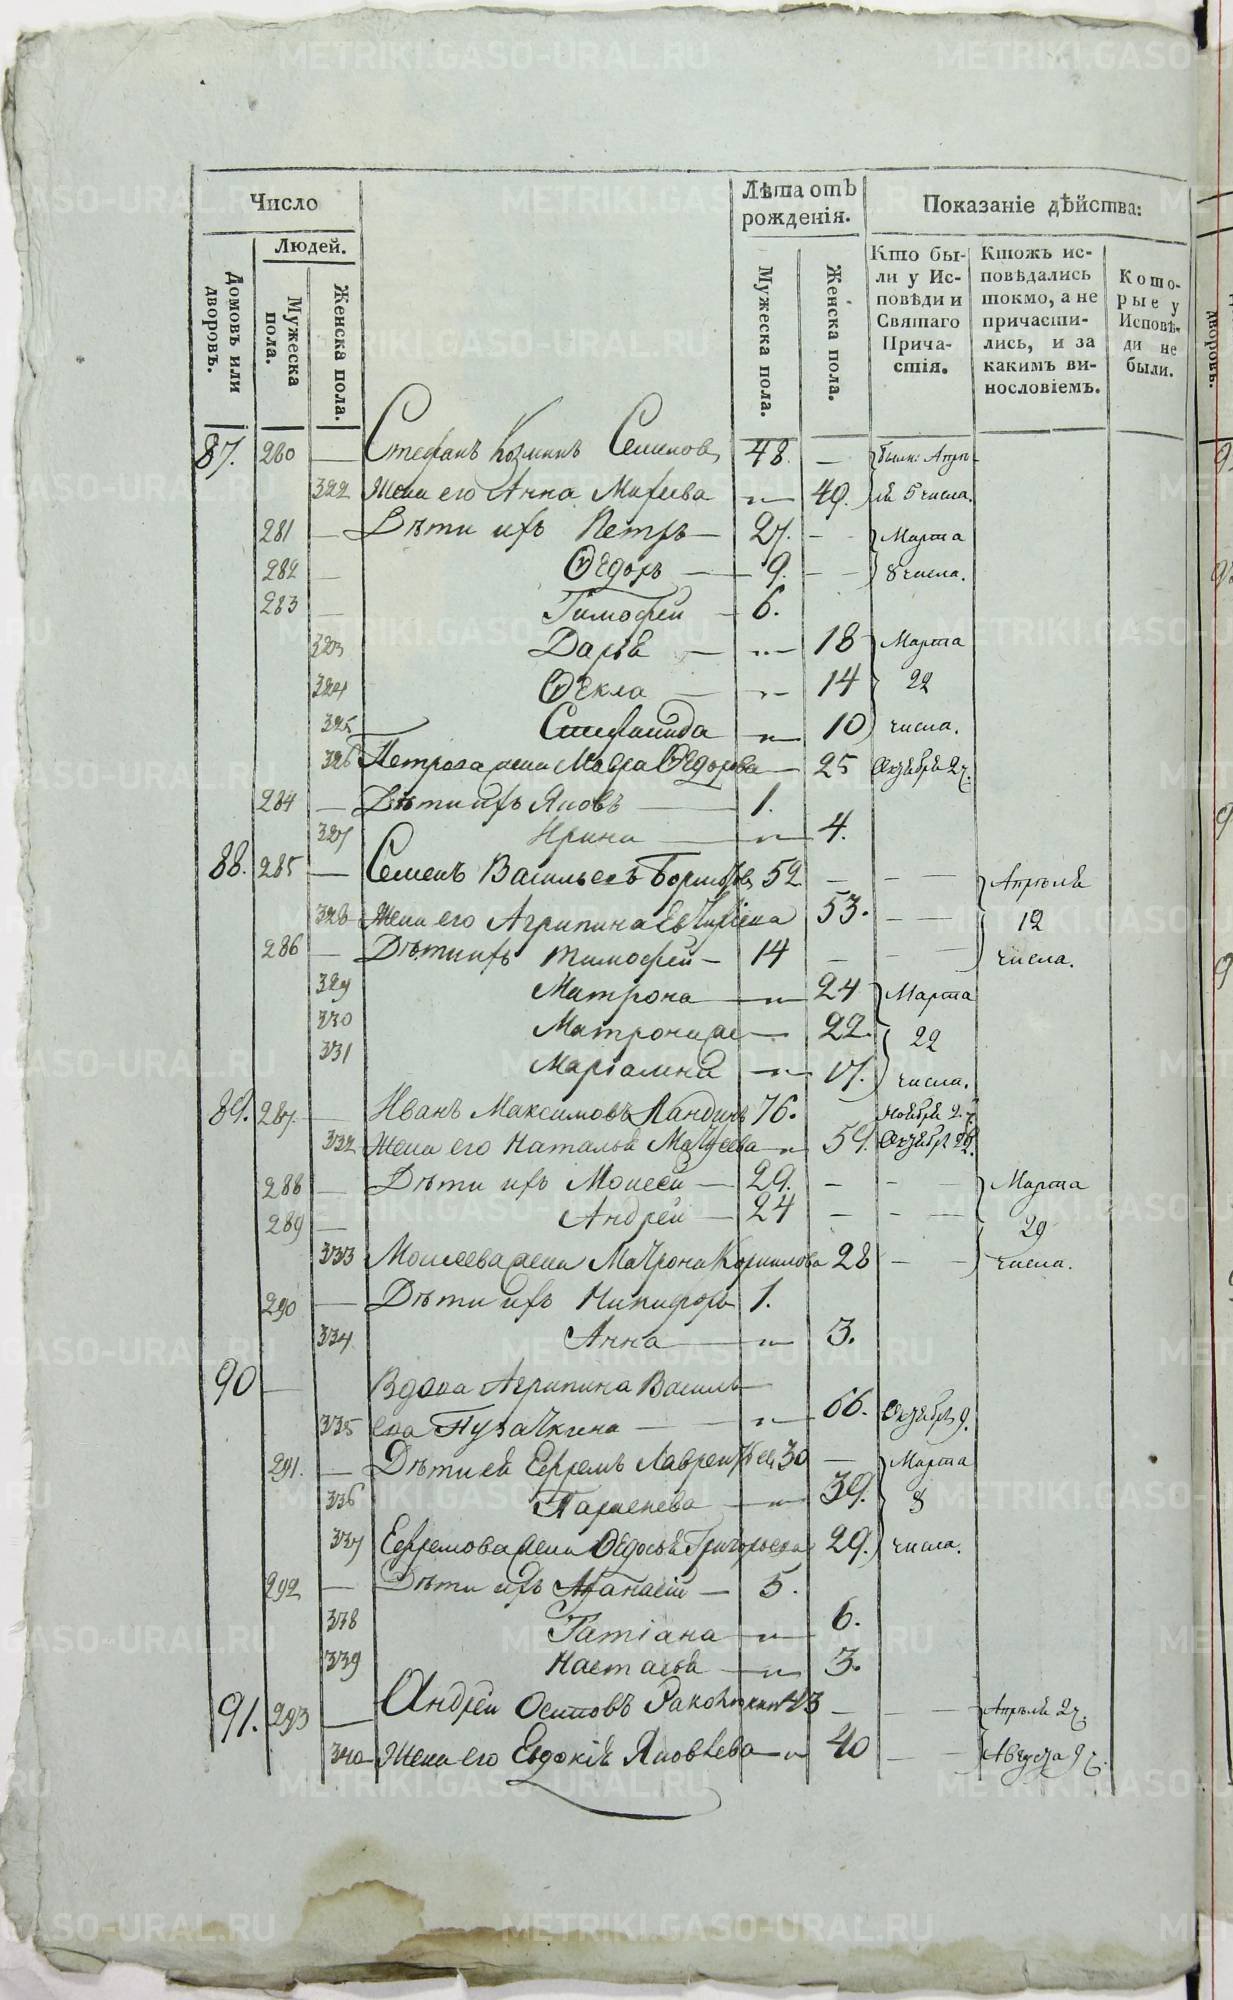 Число
Лѣта отъ рожденія.
Показаніе дѣйства:
Людей.
Домовъ или дворовъ.
Мужеска пола.
Женска пола.
Мужеска пола.
Женска пола.
Кто были у Исповѣди и Святаго Причастія.
Ктожъ исповѣдались токмо, а не причастились, и за какимъ винословіемъ.
Которые у Исповѣди не были.
87. 280 — Стефанъ Козминъ 48. — были: Апрѣ-
322 Жена его Анна 49. ля 5 числа.
281 — Дѣти ихъ Петръ — 27. — Марта
282 — Ѳедоръ — 9. — 8 числа.
283 — Тимофей — 6.
323 Дарья — „ — 18 Марта
324 Ѳекла — „ — 14 22
325 Стефанида „ — 10 числа.
326 Петрова жена Мавра Ѳедорова — 25 Октября 27.
284 — Дѣти ихъ Яковъ — 1.
327 Ирина — „ — 4.
88. 285 — Семенъ Васильевъ 52 — — — Апрѣля
328 Жена его Агрипина 53. — — 12
286 — Дѣти ихъ Тимофей — 14 — — — числа.
329 Матрона — „ — 24 Марта
330 Матрона же — 22. 22
331 Маріамна — „ — 17. числа.
89. 287. — Иванъ Максимовъ Ландинъ 76. Ноября 27
332 Жена его Наталья Матѵеева — „ 59. Октября 28.
288 — Дѣти ихъ Моисей — 29. — — — Марта
289 — Андрей — 24 — — — 29
333 Моисеева жена Матрона Корнилова 28 — — числа.
290 — Дѣти ихъ Никифоръ 1.
334 Анна — „ — 3.
90 — Вдова Агрипина Василь-
335 ева Пузачкина — „ — 66. Октября 9.
291. — Дѣти ей Ефремъ Лаврентьевъ 30 — Марта
336 — „ — 39. 8
337 Ефремова жена Ѳедосья Григорьева 29. числа.
292 — Дѣти ихъ Афанасій — 5.
338 Татіана — „ — 6.
339 Настасья — „ — 3.
91. 293 — Андрей Осиповъ 43 — — — Апрѣля 27.
340 Жена его Евдокія Яковлева — „ — 40 — — Августа
METRIKI.GASO-URAL.RU